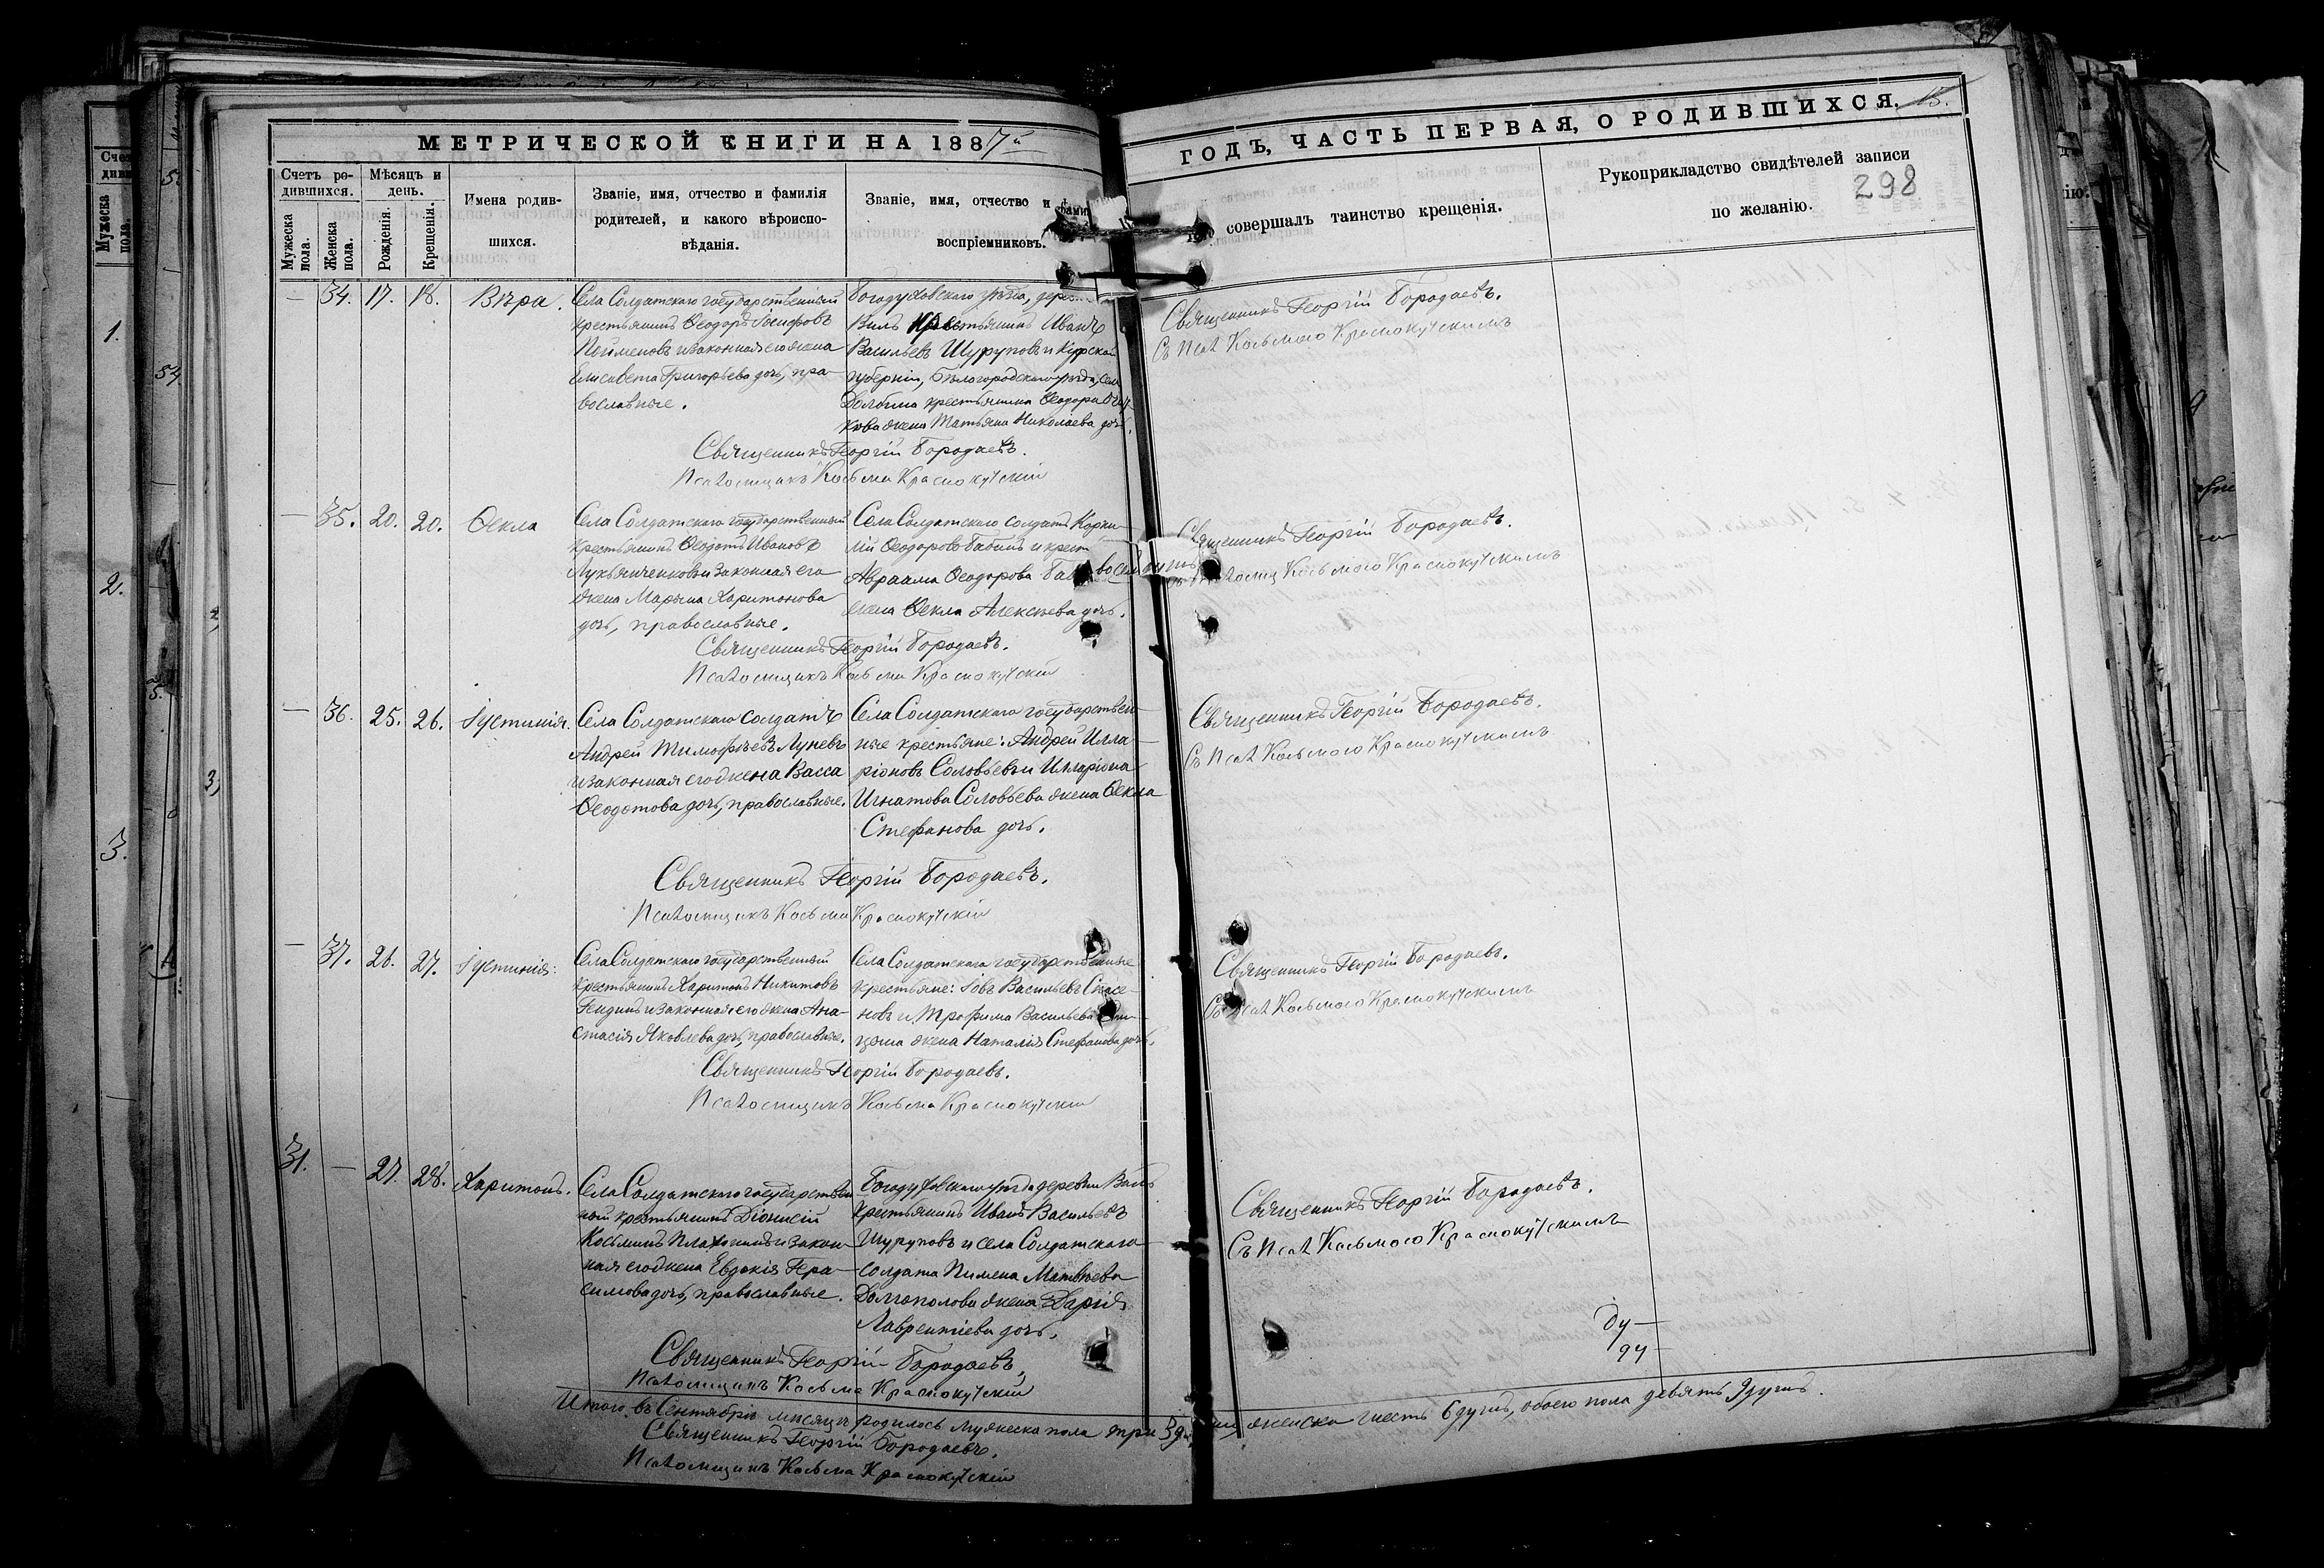 МЕТРИЧЕСКОЙ КНИГИ НА 1887й
ГОДЪ, ЧАСТЬ ПЕРВАЯ, О РОДИВШИХСЯ. 15.
298
Счетъ ро-
дившихся.
Мужеска пола.
Женска пола.
Мѣсяцъ и
день.
Рожденія.
Крещенія.
Имена родив-
шихся.
Званіе, имя, отчество и фамилія
родителей, и какого вѣроиспо-
вѣданія.
Званіе, имя, отчество и фами
воспріемниковъ.
совершалъ таинство крещенія.
Рукоприкладство свидѣтелей записи
по желанію.
— 34. 17. 18. Вѣра.
Села Солдатскаго государственный
крестьянинъ Ѳеодоръ Іосифовъ
и законная его жена
Елисавета Григорьева дочь, пра-
вославные.
Богодуховскаго уѣзда,
крестьянинъ Иванъ
Васильевъ Шуруповъ и Курской
губерніи, Бѣлогородскаго уѣзда, села
крестьянина Ѳеодора
жена Татьяна Николаева дочь.
Священникъ Георгій Бородаевъ.
Съ Псал Косьмою Краснокутскимъ
Священникъ Георгій Бородаевъ.
Псаломщикъ Косьма Краснокутскій
— 35. 20. 20. Ѳекла
Села Солдатскаго государственный
крестьянинъ Ѳеодотъ Ивановъ
Лукьянченковъ и законная его
жена Марѳа Харитонова
дочь, православные.
Села Солдатскаго солдатъ Корни-
лій Ѳеодоровъ Бабинъ и крест
Авраама Ѳеодорова
жена Ѳекла Алексѣева дочь.
Священникъ Георгій Бородаевъ.
Косьмою Краснокутскимъ
Священникъ Георгій Бородаевъ.
Псаломщикъ Косьма Краснокутскій
— 36. 25. 26. Іустинія.
Села Солдатскаго солдатъ
Андрей Тимофѣевъ Луневъ
и законная его жена Васса
Ѳеодотова дочь, православные.
Села Солдатскаго государствен-
ные крестьяне: Андрей Илла-
ріоновъ Соловьевъ и Илларіона
Игнатова Соловьева жена Ѳекла
Стефанова дочь.
Священникъ Георгій Бородаевъ.
Съ Псал Косьмою Краснокутскимъ
Священникъ Георгій Бородаевъ.
Псаломщикъ Косьма Краснокутскій
— 37. 26. 27. Іустинія.
Села Солдатскаго государственный
крестьянинъ Харитонъ Никитовъ
и законная его жена Ана-
стасія Яковлева дочь, православные.
Села Солдатскаго государственные
крестьяне: Іовъ Васильевъ
и Трофима Васильева
жена Наталія Стефанова дочь.
Священникъ Георгій Бородаевъ.
Съ Псал Косьмою Краснокутскимъ
Священникъ Георгій Бородаевъ.
Псаломщикъ Косьма Краснокутскій
31. — 27. 28. Харитонъ.
Села Солдатскаго государствен-
ный крестьянинъ Діонисій
Косьминъ и закон-
ная его жена Евдокія Гера-
симова дочь, православные.
Богодуховскаго уѣзда деревни
крестьянинъ Иванъ Васильевъ
Шуруповъ и села Солдатскаго
солдата Пимена Матвѣева
Долгополова жена Дарія
Лаврентіева дочь.
Священникъ Георгій Бородаевъ.
Съ Псал Косьмою Краснокутскимъ
Священникъ Георгій Бородаевъ.
Псаломщикъ Косьма Краснокутскій
Итого въ Сентябрѣ мѣсяцѣ родилось мужеска пола три 3 женска шесть 6 душъ, обоего пола девять 9 душъ.
Священникъ Георгій Бородаевъ.
Псаломщикъ Косьма Краснокутскій